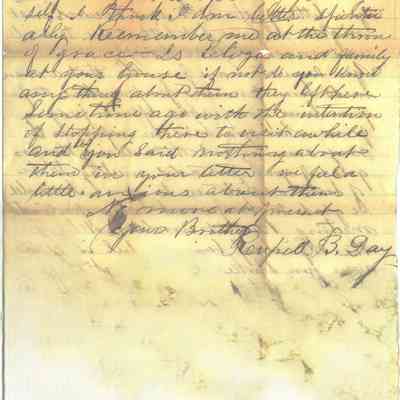 self I think I am better spiritu
ally Remember me at the throne
of grace Is Eliza and family
at your house if not do you know
any thing about them they left here
Sometime ago with the intention
of stopping there to visit awhile
and you said nothing about
them in your letter we feel a
little anxious about them
No more at present
Your Brother
B. Day